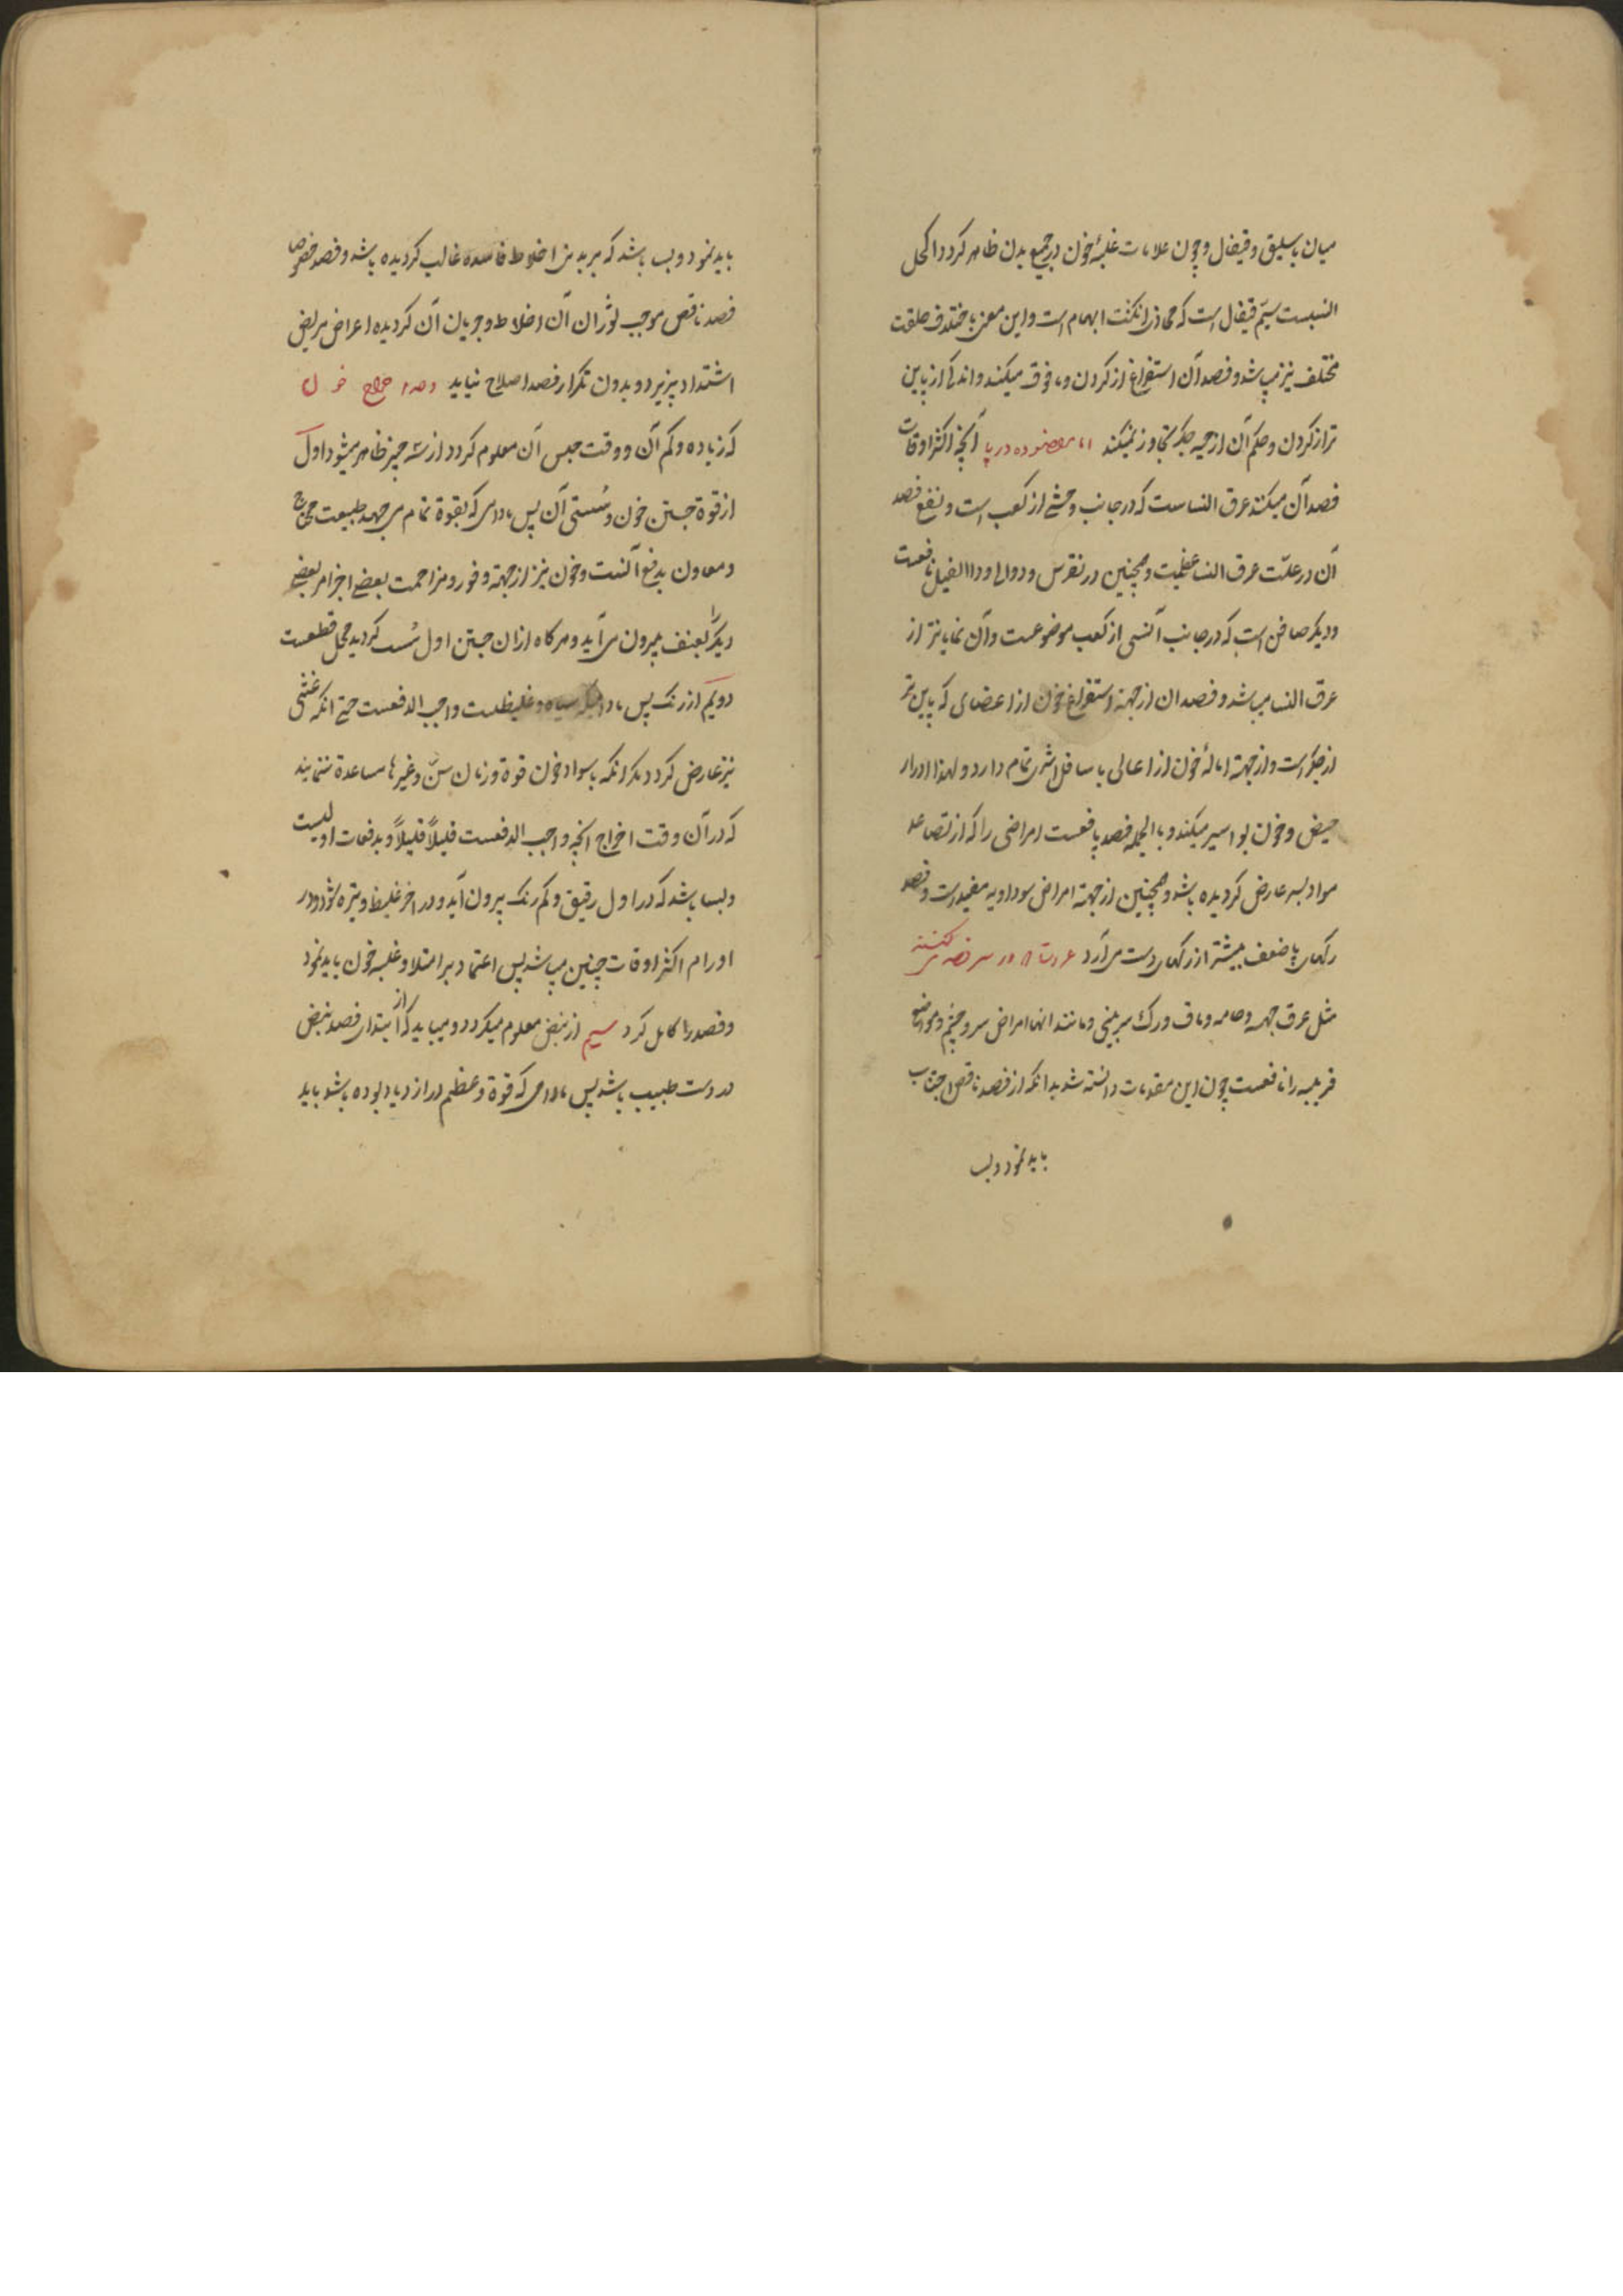 میان باسلیق و قیفال و چون علامات غلبهٔ خون در جمیع بدن ظاهر کردد اکحل
انسبست سیّم قیفال است که محاذی انکشت ابهام است و این معنی باختلاف خلقت
مختلف نیز میباشد و فصد آن استفراغ از کردن و مافوق میکند و اندکی از پایین
تر از کردن و حکم آن از حیه جکر تجاوز نمیکند اما مفصوده در پا آنچه اکثر اوقات
فصد آن میکنند عرق النساست که در جانب وحشی از کعب است و نفع فصد
آن در علّت عرق النسا عظیمست و همچنین در نقرس و دوالی و داء الفیل نافعست
و دیکر صافن است که در جانب انسی از کعب موضوعست و آن نمایانتر از
عرق النسا میباشد و فصد ان از جهة استفراغ خون از اعضای که پایین تر
از جکر است و از جهة امالهٔ خون از اعالی باسافل اثری تمام دارد و لهذا ادرار
حیض و خون بواسیر میکند و بالجمله فصد پا نافعست امراضی را که از تصاعد
مواد بسر عارض کردیده باشد و همچنین از جهة امراض سوداویه مفید است و فصد
رکهای پا ضعف بیشتر از رکهای دست می آرد عروقی که در سر فصد می کنند
مثل عرق جبهه و هامه و ماق و رک سر بینی و مانند انها امراض سر و چشم و مواضع
قریبه را نافعست چون این مقدمات دانسته شد بدانکه از فصد ناقص اجتناب
باید نمود و بس
باید نمود و بس باشد که بر بدن اخلاط فاسده غالب کردیده باشد و فصد خصوص
فصد ناقص موجب ثوران آن اخلاط و جریان آن کردیده اعراض مریض
اشتداد پذیرد و بدون تکرار فصد اصلاح نیاید و حد اخراج خون
که زیاده و کم آن و وقت حبس آن معلوم کردد از سه چیز ظاهر میشود اول
از قوة جستن خون و سُستی آن پس مادامی که بقوة تمام می جهد طبیعت محتاج
و معاون بدفع آنست و خون نیز از جهة وفور و مزاحمت بعضی اجزا مر بعضی
دیکر را بعنف بیرون می آید و هر کاه از ان جستن اول سُست کردید محل قطعست
دویّم از رنک پس مادامیکه سیاه و غلیظست واجب الدفعست حتی انکه غشی
نیز عارض کردد مکر انکه با سواد خون قوة و زمان سنّ و غیرها مساعدة ننمایند
که در آن وقت اخراج انچه واجب الدفعست قلیلاً قلیلاً و بدفعات اولیست
و بسا باشد که در اول رقیق و کم رنک بیرون آید و در اخر غلیظ و تیره شود و در
اورام اکثر اوقات چنین میباشد پس اعتماد بر امتلا و غلبه خون باید نمود
و فصد را کامل کرد سیم از نبض معلوم میکردد و میباید که از ابتدای فصد نبض
در دست طبیب باشد پس مادامی که قوة و عظم در ازدیاد بوده باشد باید